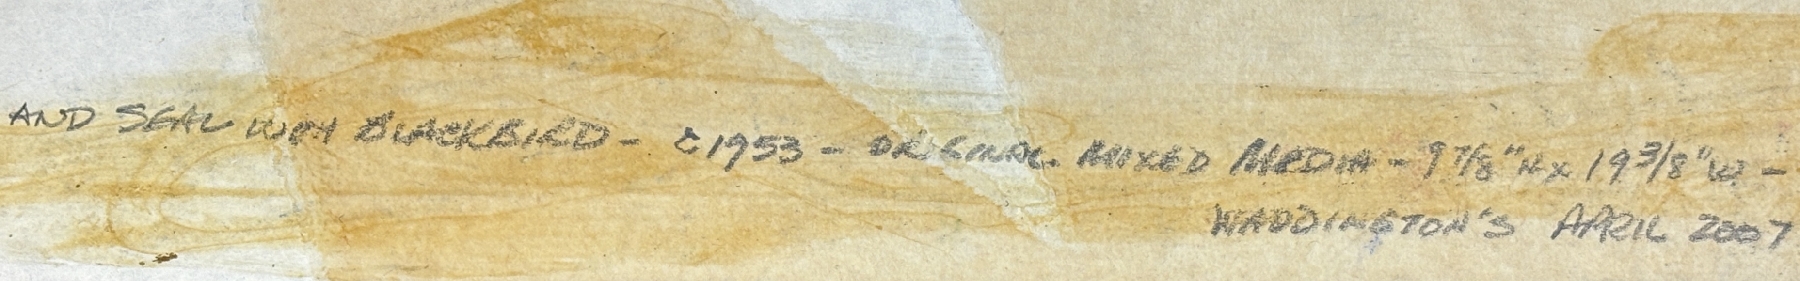 AND SEAL WITH BLACKBIRD - c1953 - ORIGINAL MIXED MEDIA - 9 7/8" H x 19 3/8" W -
WADDINGTON'S APRIL 2007